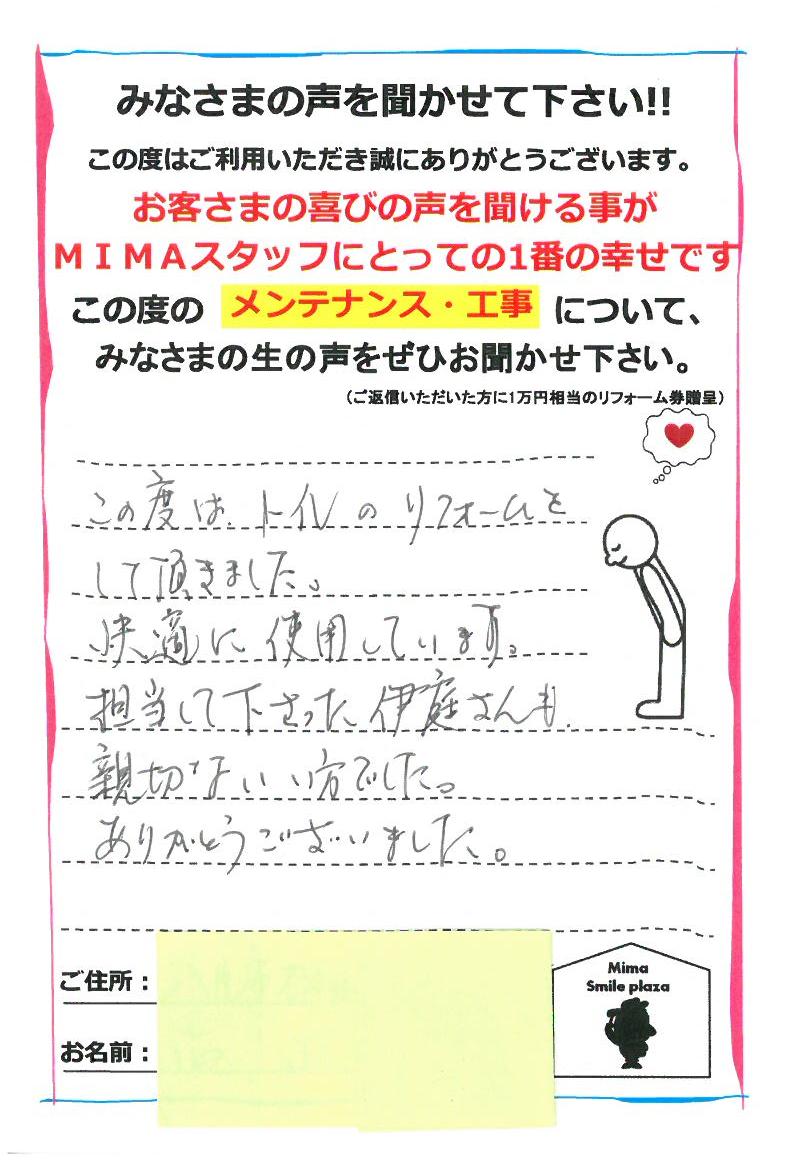 みなさまの声を聞かせて下さい!!
この度はご利用いただき誠にありがとうございます。
お客さまの喜びの声を聞ける事が
ＭＩＭＡスタッフにとっての1番の幸せです
この度の メンテナンス・工事 について、
みなさまの生の声をぜひお聞かせ下さい。
（ご返信いただいた方に1万円相当のリフォーム券贈呈）
この度は、トイレのリフォームを
して頂きました。
快適に使用しています。
担当して下さった伊庭さんも、
親切ないい方でした。
ありがとうございました。
ご住所：
お名前：
Mima
Smile plaza